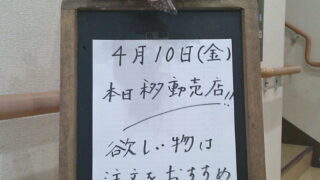 4月10日(金)
本日移動売店!!
欲しい物は
注文をおすすめ